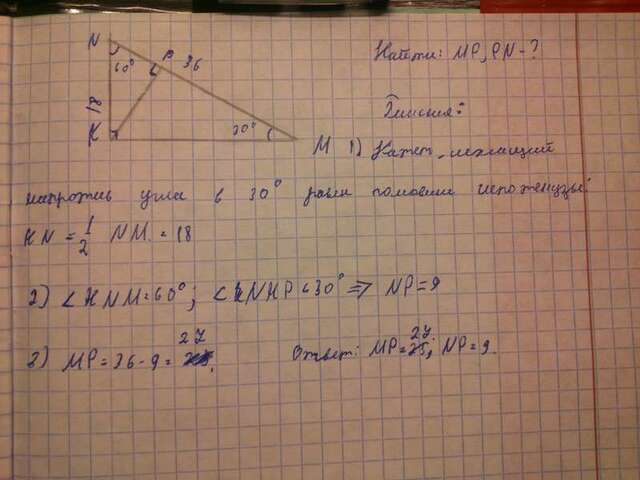 N
P 36
60°
18
K
30°
M
Найти: MP, PN - ?
Решения:
1) Катет, лежащий
напротив угла в 30° равен половине гипотенузы:
KN = 1/2 NM = 18
2) ∠KNM=60°; ∠NKP=30° => NP=9
3) MP = 36 - 9 = 27.
Ответ: MP=27; NP=9.